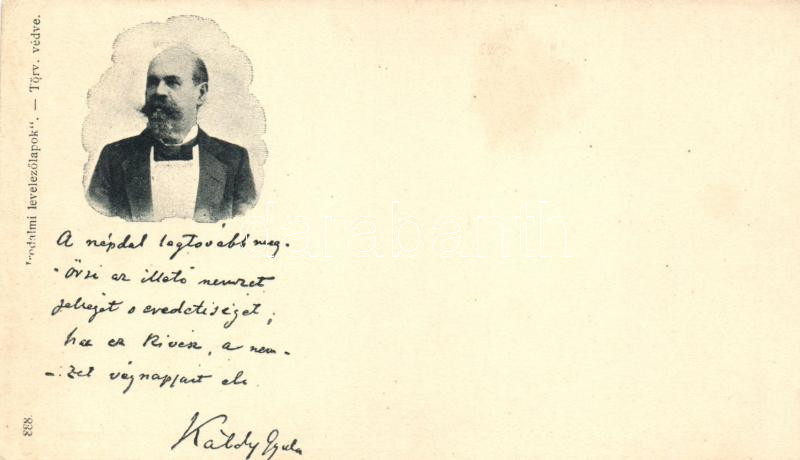 Irodalmi levelezőlapok“. — Törv. védve.
A népdal legtovább meg-
-őrzi az illető nemzet
jellegét s eredetiségét;
ha ez kivész, a nem-
-zet végnapjait éli.
Káldy Gyula
888.